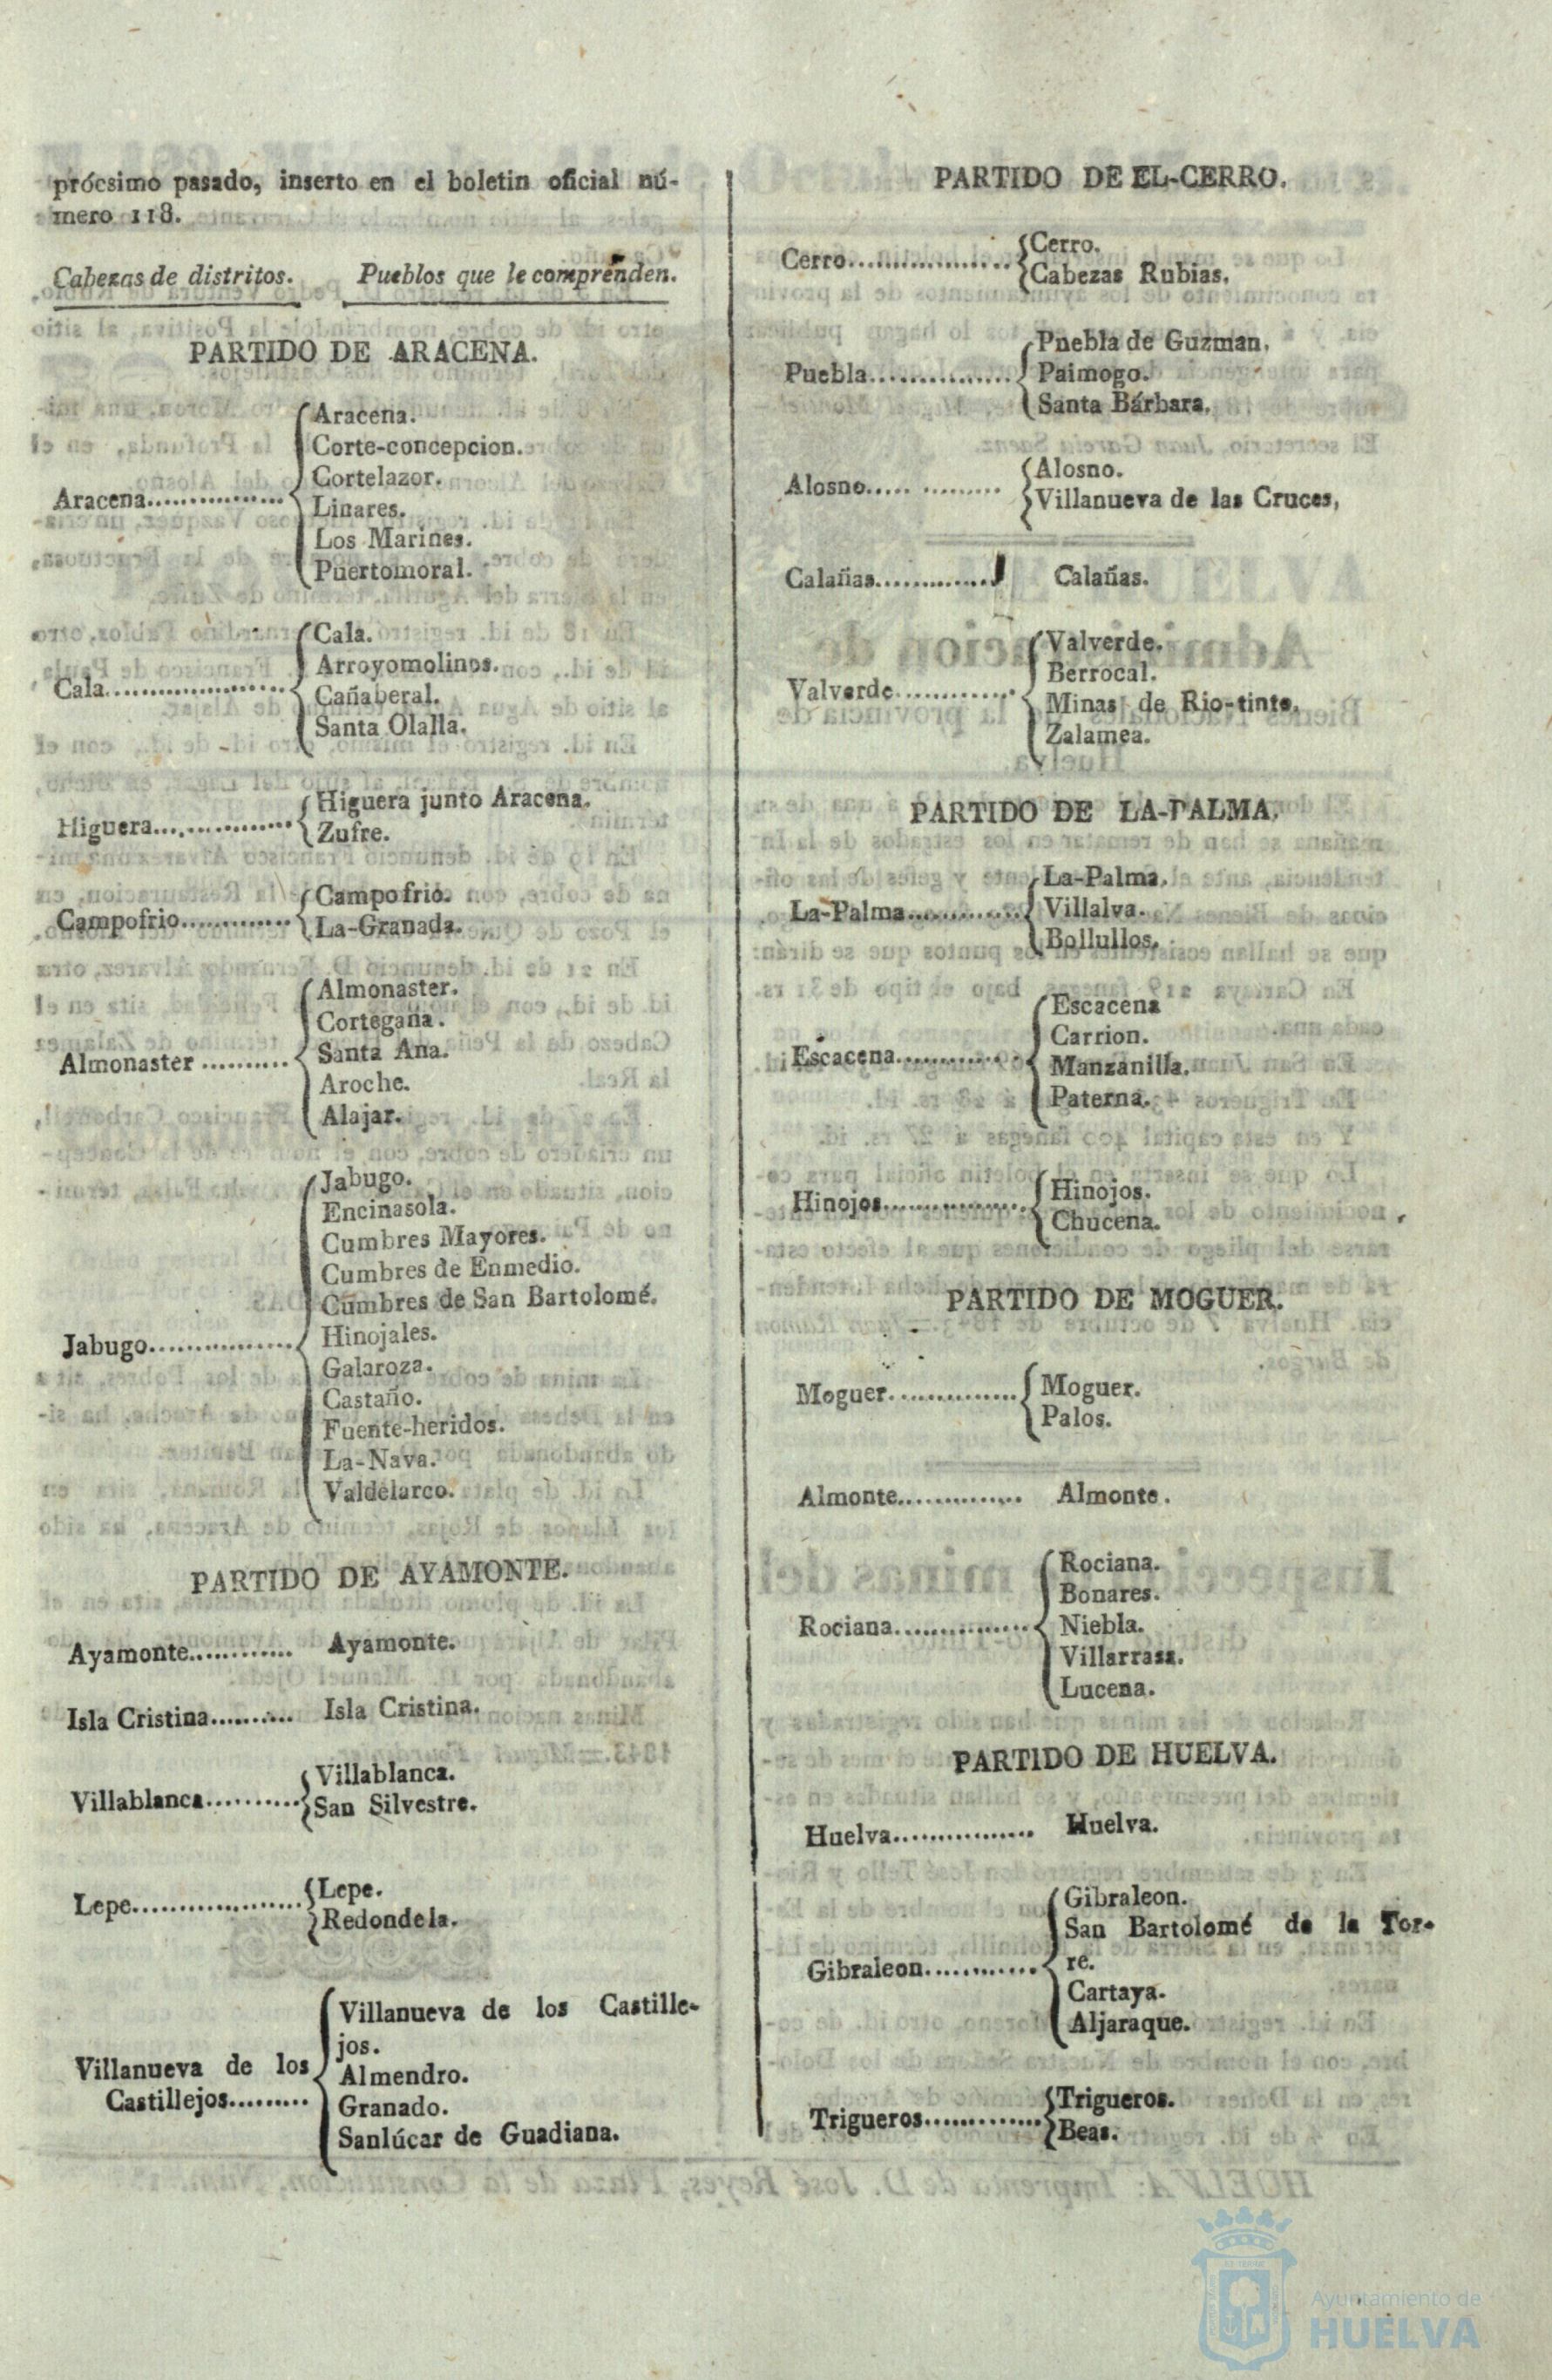 prócsimo pasado, inserto en el boletin oficial nú-
mero 118.
Cabezas de distritos. Pueblos que le comprenden.
PARTIDO DE ARACENA.
Aracena...............
Aracena.
Corte-concepcion.
Cortelazor.
Linares.
Los Marines.
Puertomoral.
Cala...................
Cala.
Arroyomolinos.
Cañaberal.
Santa Olalla.
Higuera...............
Higuera junto Aracena.
Zufre.
Campofrio............
Campofrio.
La-Granada.
Almonaster ..........
Almonaster.
Cortegana.
Santa Ana.
Aroche.
Alajar.
Jabugo................
Jabugo.
Encinasola.
Cumbres Mayores.
Cumbres de Enmedio.
Cumbres de San Bartolomé.
Hinojales.
Galaroza.
Castaño.
Fuente-heridos.
La-Nava.
Valdelarco.
PARTIDO DE AYAMONTE.
Ayamonte............ Ayamonte.
Isla Cristina.......... Isla Cristina.
Villablanca..........
Villablanca.
San Silvestre.
Lepe...................
Lepe.
Redondela.
Villanueva de los
Castillejos.........
Villanueva de los Castille-
jos.
Almendro.
Granado.
Sanlúcar de Guadiana.
PARTIDO DE EL-CERRO.
Cerro..................
Cerro.
Cabezas Rubias.
Puebla................
Puebla de Guzman.
Paimogo.
Santa Bárbara.
Alosno..... .........
Alosno.
Villanueva de las Cruces,
Calañas............. Calañas.
Valverde.............
Valverde.
Berrocal.
Minas de Rio-tinto.
Zalamea.
PARTIDO DE LA-PALMA.
La-Palma............
La-Palma.
Villalva.
Bollullos.
Escacena.............
Escacena
Carrion.
Manzanilla.
Paterna.
Hinojos................
Hinojos.
Chucena.
PARTIDO DE MOGUER.
Moguer..............
Moguer.
Palos.
Almonte............. Almonte.
Rociana...............
Rociana.
Bonares.
Niebla.
Villarrasa.
Lucena.
PARTIDO DE HUELVA.
Huelva................ Huelva.
Gibraleon............
Gibraleon.
San Bartolomé de la Tor-
re.
Cartaya.
Aljaraque.
Trigueros.............
Trigueros.
Beas.
Ayuntamiento de
HUELVA